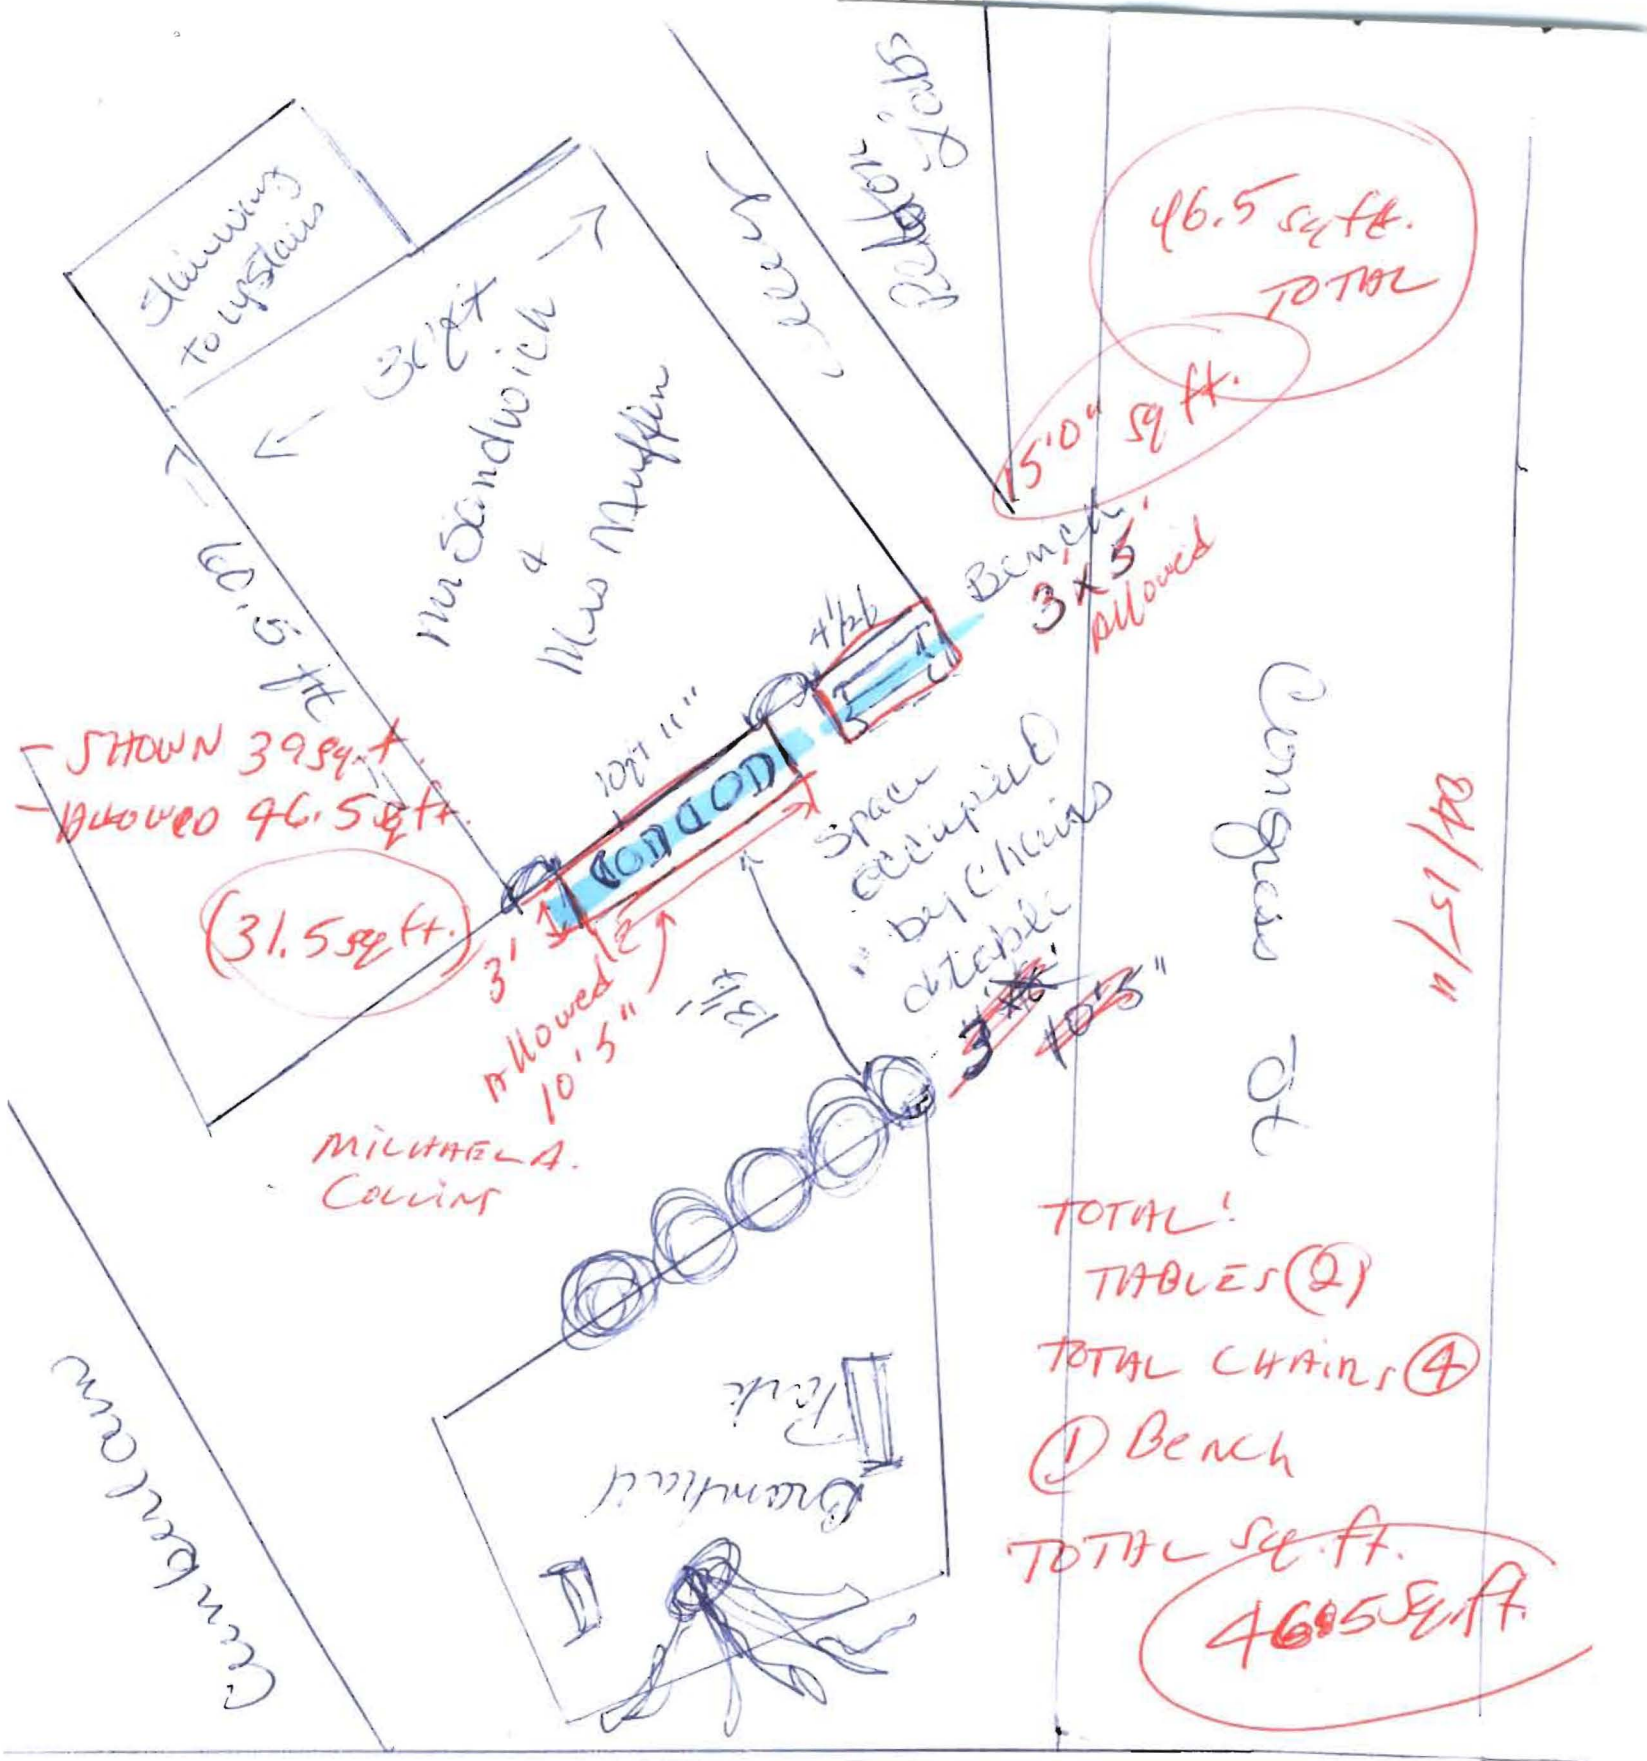 Stairway
to upstairs
Mr Sandwich
&
Miss Muffin
60.5 ft
46.5 sq ft.
TOTAL
15'0" sq ft.
Bench
3' x 5'
Allowed
4 1/2 ft
10ft 11"
- SHOWN 39 sq. ft.
- ALLOWED 46.5 sq ft.
(31.5 sq ft.)
3'
Allowed
10'5"
Space
occupied
by chairs
& table
MICHAEL A.
COLLINS
Congress St
04/15/11
TOTAL:
TABLES (2)
TOTAL CHAIRS (4)
(1) Bench
TOTAL Sq. ft.
46.5 Sq. ft.
Bramhall
Park